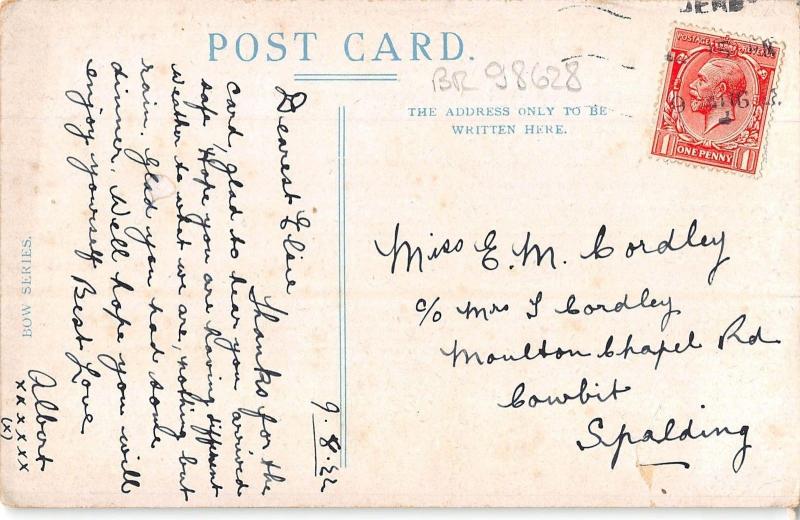 POST CARD.
BR 98628
THE ADDRESS ONLY TO BE
WRITTEN HERE.
POSTAGE REVENUE
1 ONE PENNY 1
9. 8. 22
Dearest Elsie
Thanks for the
card, glad to hear you arrived
safe, Hope you are having different
weather to what we are, nothing but
rain. Glad you had some
dinner, Well hope you will
enjoy yourself Best Love
Albert
x x x x x x
(x)
Miss E. M. Cordley
c/o Mrs J Cordley
Moulton Chapel Rd
Cowbit
Spalding
BOW SERIES.